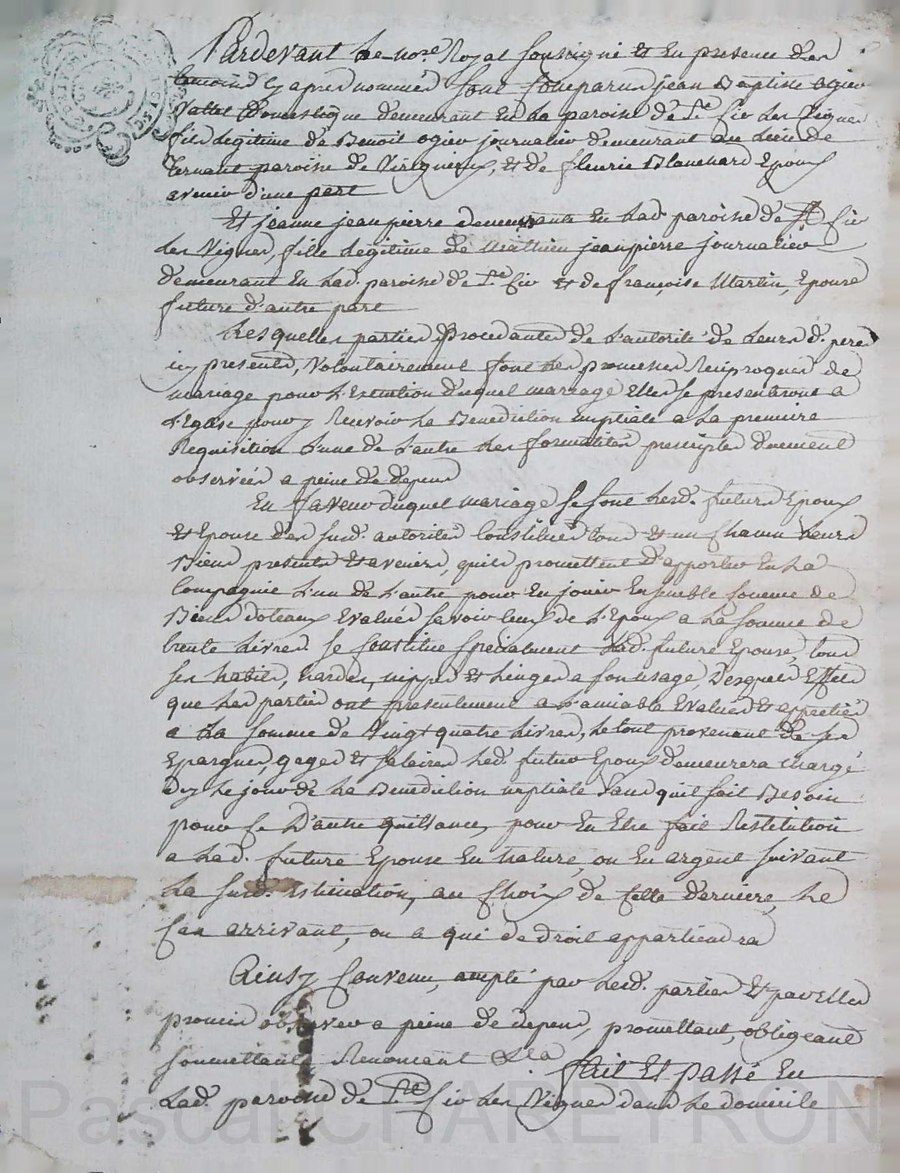 Pardevant Le no.re Royal soussigné et en presence des
temoins cy apres nommés sont comparus jean Baptiste ogier
vallet domestique demeurant en la paroise de St Cir les Vignes
fils legitime de Benoit ogier journalier demeurant au lieu de
Ternant paroise de Virigneux, et de fleurie Blanchard Epoux
avenir d'une part
Et jeanne jeanpierre demeurante en lad. paroise de St Cir
les Vignes, fille legitime de Mathieu jeanpierre journalier
demeurant en lad. paroise de St Cir et de françoise Martin, Epouse
future d'autre part
Lesquelles parties procedantes de l'autorité de leurs d. peres
icy presents, volontairement font les promesses Reciproques de
mariage pour l'Execution duquel mariage Elles se presenteront a
l'Eglise pour y Recevoir la Benediction nuptiale a la premiere
Requisition l'une de l'autre les formalités prescriptes duement
observées a peine de depens
En faveur duquel mariage se sont lesd. futurs Epoux
et Epouse des susd. autorités Constitués tous et un chacun leurs
Biens presents et avenirs, quils promettent d'apporter en la
Compagnie l'un de l'autre pour en jouir Ensemble comme de
Biens doteaux Evalués savoir ceux de l'Epoux a la somme de
trente livres se constitue specialment lad. future Epouse, tous
ses habits, hardes, nippes et linges a son usage, desquels Effets
que les parties ont presentement a l'amiable Evalués et appretiés
a la somme de Vingt quatre livres, le tout provenant de ses
Epargnes, gages et salaires led. futur Epoux demeurera chargé
des le jour de la Benediction nuptiale sans quil soit Besoin
pour ce D'autre quittance, pour en Etre fait Restitution
a lad. future Epouse en nature, ou en argent suivant
la susd. Estimation, au choix de cette derniere, le
cas arrivant, ou a qui de droit appartiendra
Ainsy Convenu, accepté par lesd. parties et par elles
promis observer a peine de depens, promettant, obligeant
soumettant Renoncant &a fait et passé en
lad. paroise de St Cir les Vignes dans le domicile
Pascal CHAREYRON